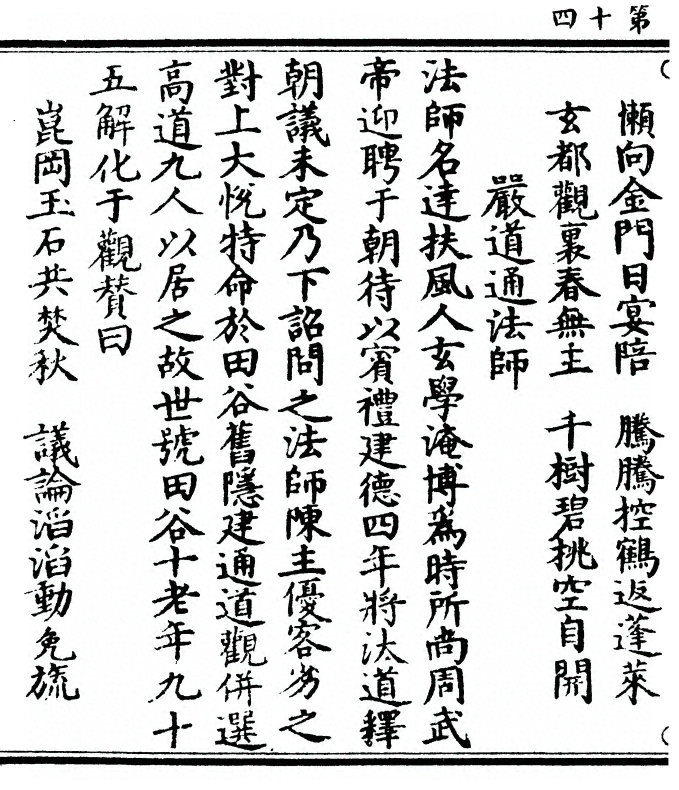 第十四
懶向金門日宴陪　騰騰控鶴返蓬萊
玄都觀裏春無主　千樹碧桃空自開
嚴道通法師
法師名達扶風人玄學淹博爲時所尚周武
帝迎聘于朝待以賓禮建德四年將汰道釋
朝議未定乃下詔問之法師陳主優客劣之
對上大悅特命於田谷舊隱建通道觀併選
高道九人以居之故世號田谷十老年九十
五解化于觀贊曰
崑岡玉石共焚秋　議論滔滔動冕旒